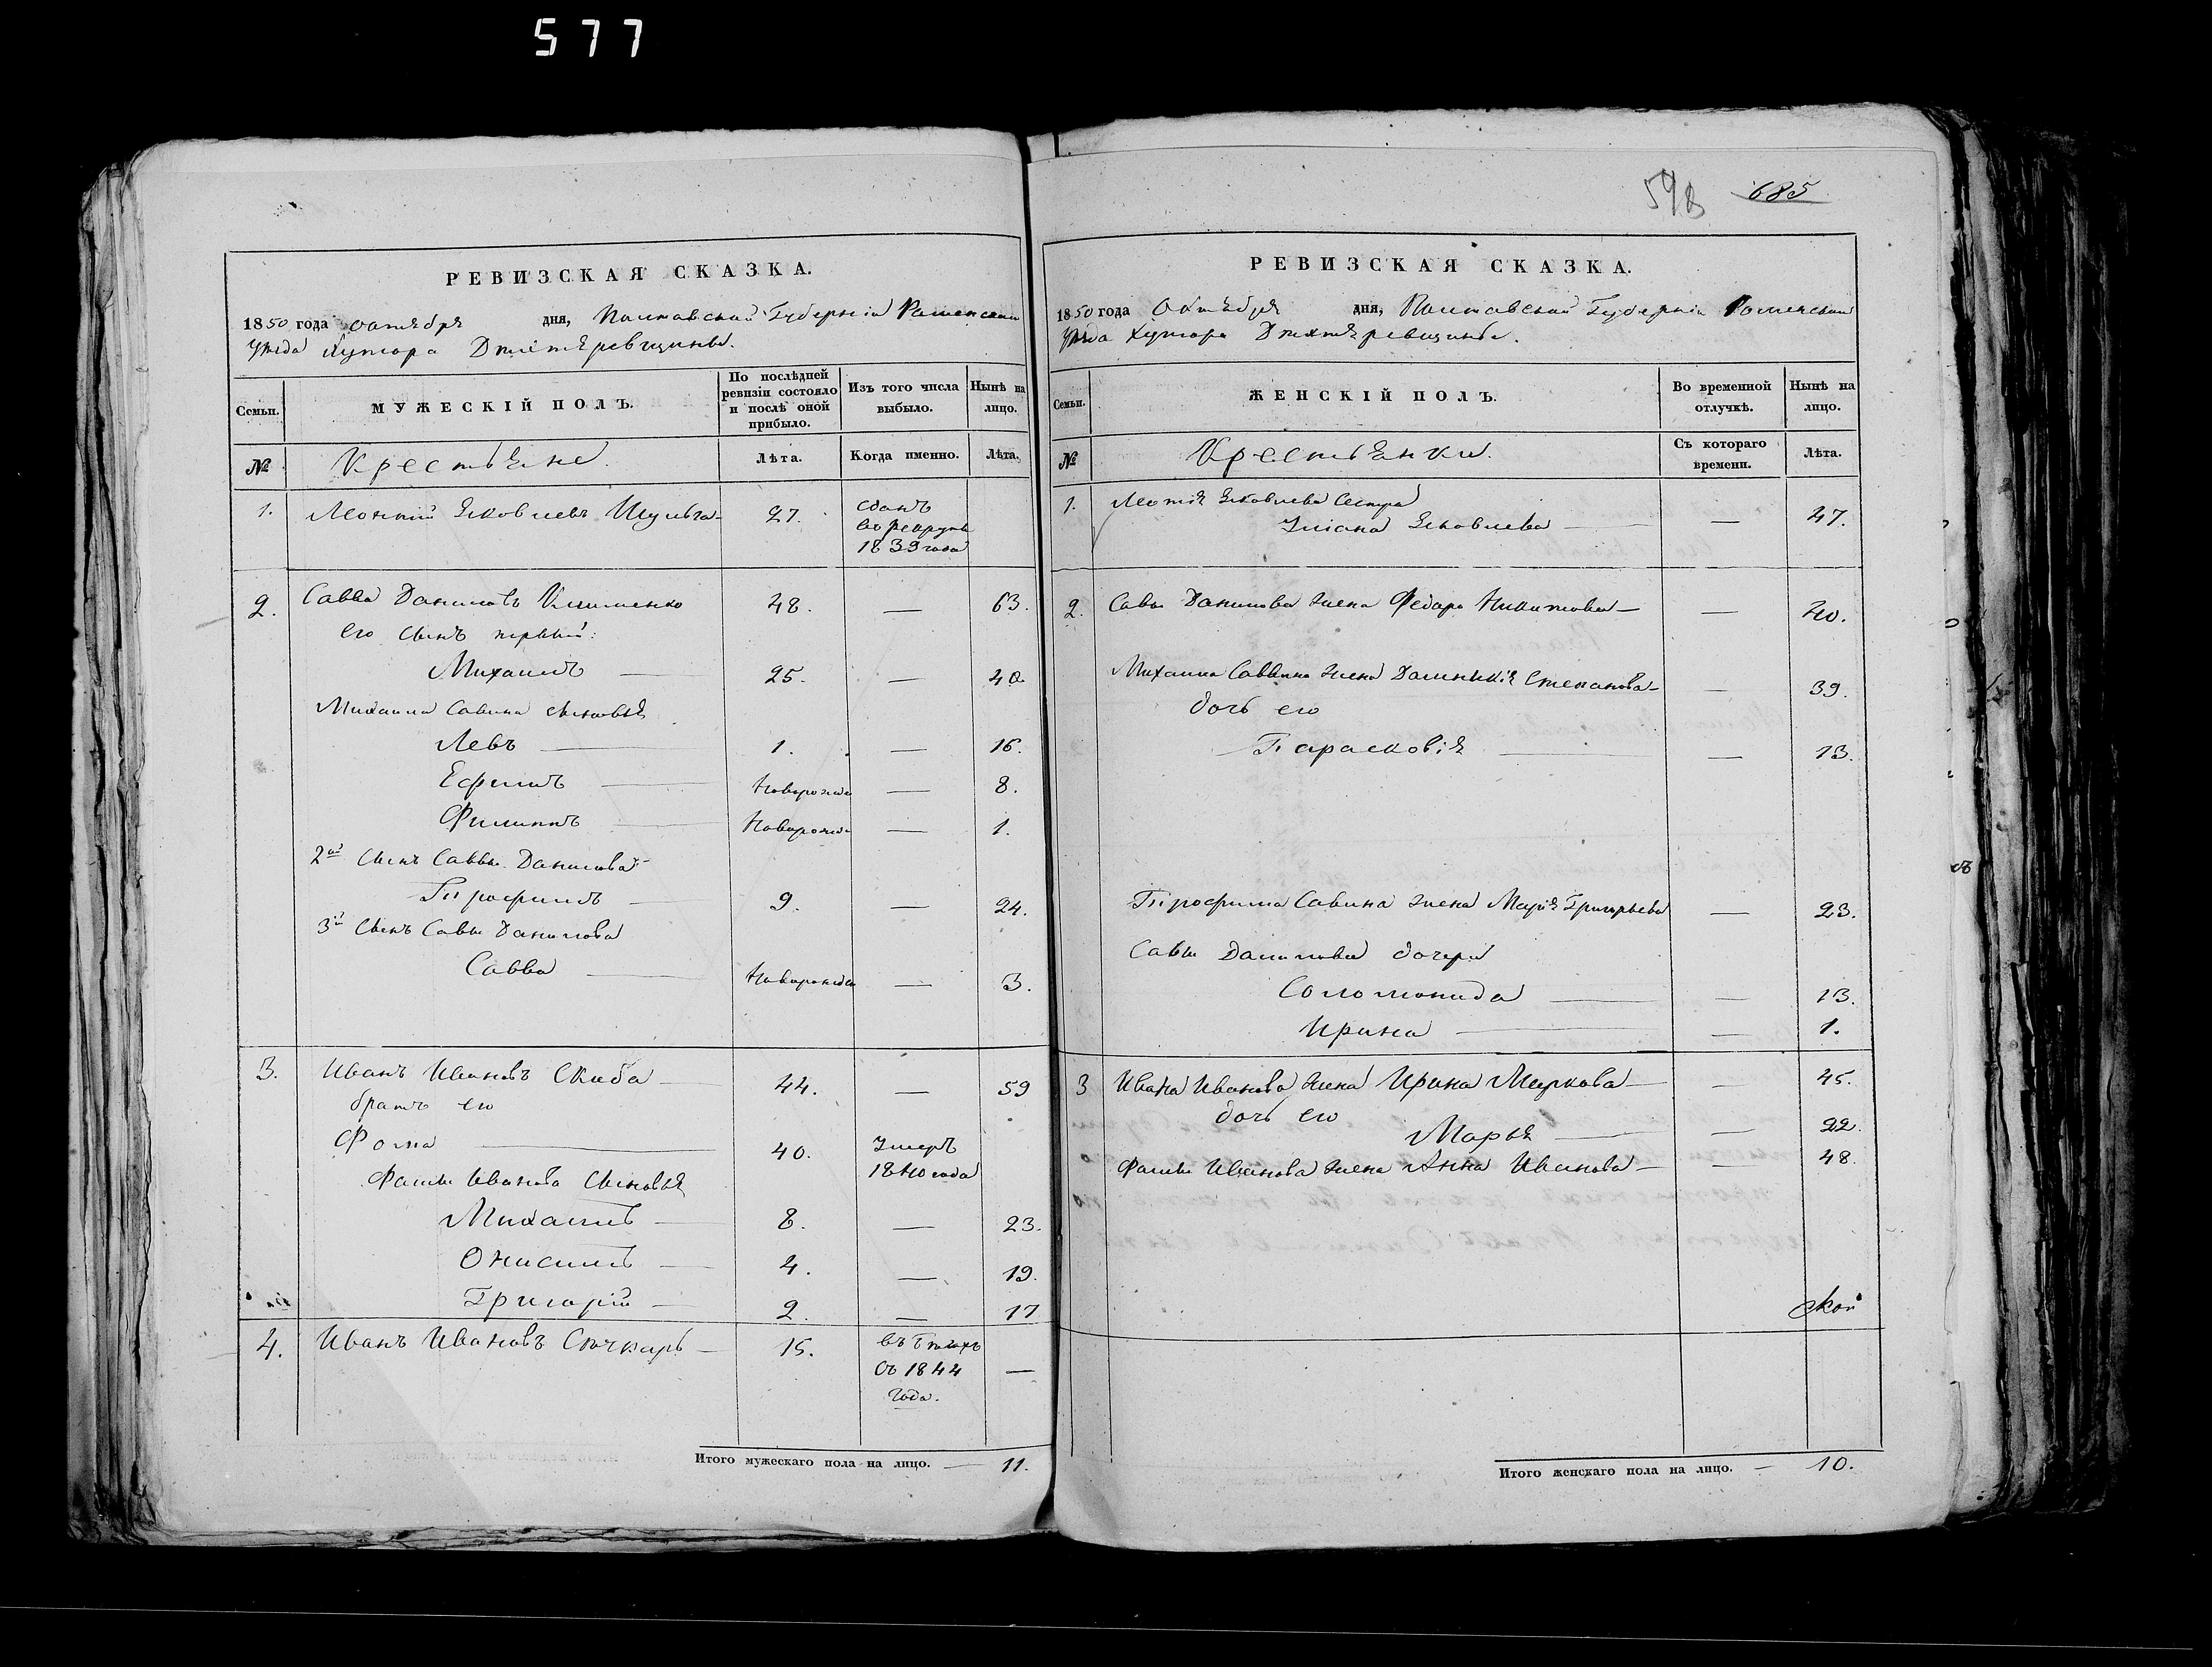 577
РЕВИЗСКАЯ СКАЗКА.
1850 года октября дня, Полтавской Губерніи Роменскаго
Уѣзда Хутора
МУЖЕСКІЙ ПОЛЪ.
Семьи.
По послѣдней ревизіи состояло и послѣ оной прибыло.
Изъ того числа выбыло.
Нынѣ на лицо.
№
Крестьяне.
Лѣта.
Когда именно.
Лѣта.
1. Леонтій Яковлевъ Шульга 27. сданъ
въ рекруты
1839 года
2. Савва Даниловъ Клименко 48. — 63.
его сынъ первый:
Михаилъ — 25. — 40.
Михаила Савина сыновья
Левъ — 1. — 16.
Ефимъ — Новорожден — 8.
Филиппъ — Новорожде — 1.
2й сынъ Саввы Данилова
Трофимъ — 9. — 24.
3й Сынъ Савы Данилова
Савва — Новорожден — 3.
3. Иванъ Ивановъ Скиба — 44. — 59
братъ его
Фома — 40. Умеръ
1840 года
Фомы Иванова Сыновья
Михаилъ — 8. — 23.
Онисимъ — 4. — 19.
Григорій — 2. — 17
4. Иванъ Ивановъ — 15. въ бѣгахъ —
съ 1844
года.
Итого мужескаго пола на лицо. — 11.
598 685
РЕВИЗСКАЯ СКАЗКА.
1850 года Октября дня, Полтавской Губерніи Роменскаго
Уѣзда Хутора
Семьи.
ЖЕНСКІЙ ПОЛЪ.
Во временной отлучкѣ.
Нынѣ на лицо.
№
Крестьянки.
Съ котораго времени.
Лѣта.
1. Яковлева Сестра
Уліана Яковлева — — 47.
2. Савы Данилова жена Федора Никитова — — 40.
Михаила Саввина жена Домникія Степанова — — 39.
дочь его
Парасковія — — 13.
Трофима Савина жена Марія Григорьева — 23.
Савы Данилова дочери
Соломонида — — 13.
Ирина — — 1.
3 Ивана Иванова жена Ирина Маркова — — 45.
дочь его
Марья — — 22.
Фомы Иванова жена Анна Иванова — — 48.
ской
Итого женскаго пола на лицо. — 10.